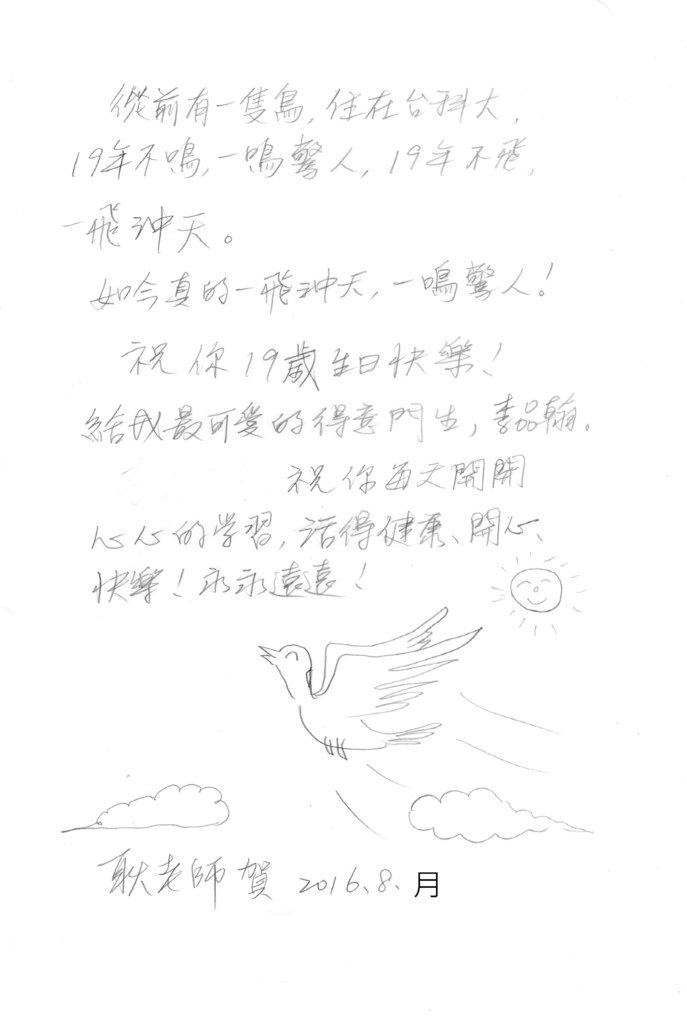 從前有一隻鳥, 住在台科大,
19年不鳴, 一鳴驚人, 19年不飛,
一飛沖天。
如今真的一飛沖天, 一鳴驚人!
祝你19歲生日快樂!
給我最可愛的得意門生, 李品翰.
祝你每天開開
心心的学習, 活得健康、開心、
快樂! 永永遠遠!
耿老師賀 2016.8.月